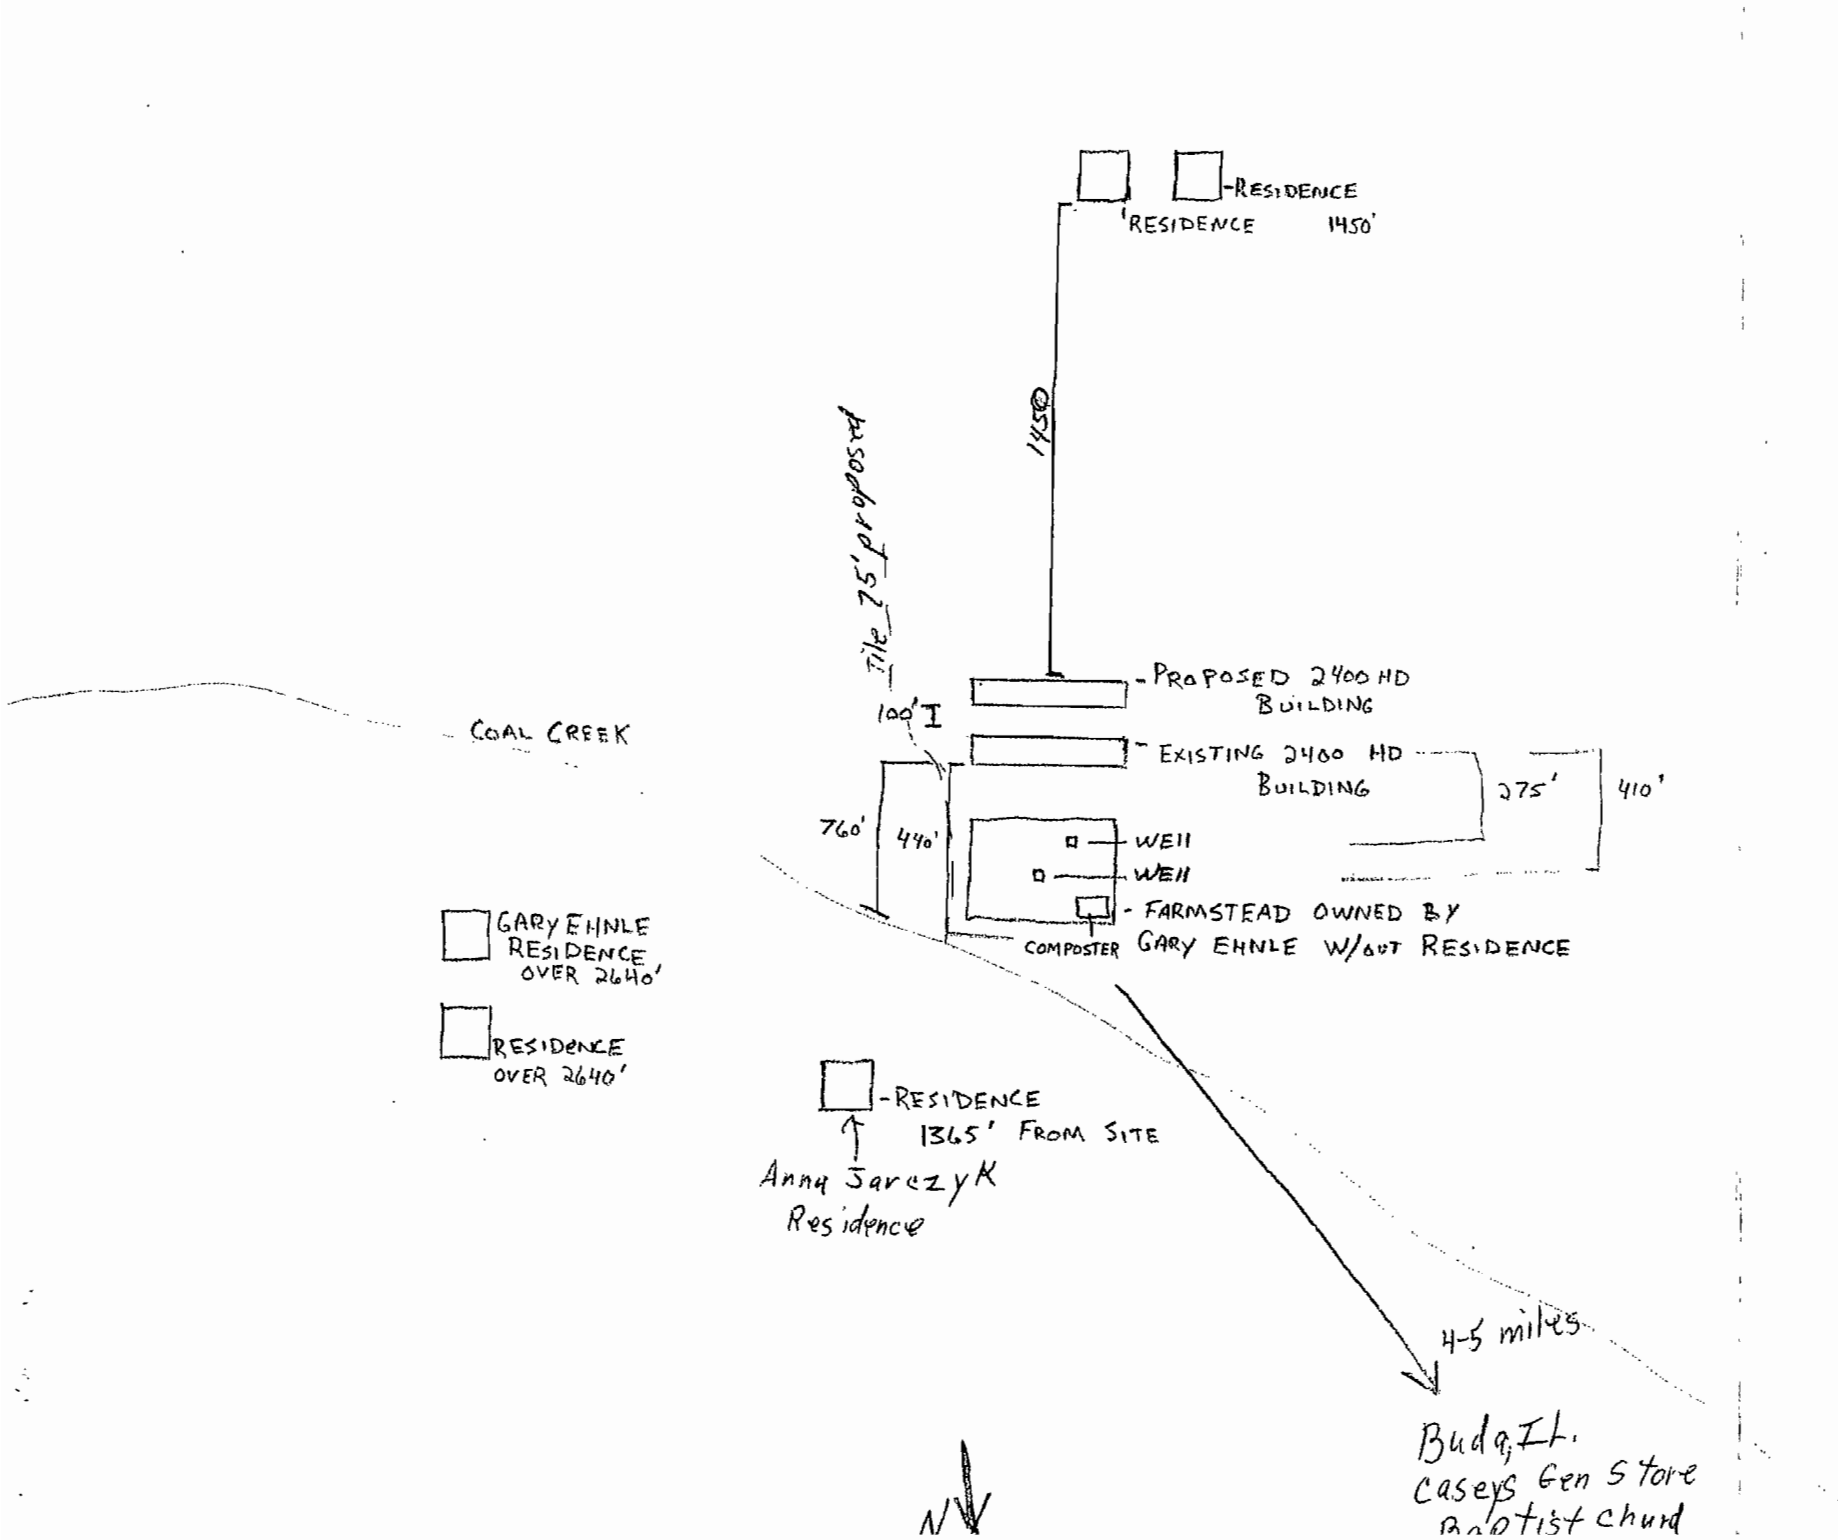 -RESIDENCE
RESIDENCE 1450'
1450
Tile 75' proposed
-PROPOSED 2400 HD
BUILDING
100'
COAL CREEK
-EXISTING 2400 HD
BUILDING
275'
410'
760'
440'
WEll
WEll
-FARMSTEAD OWNED BY
GARY EHNLE W/OUT RESIDENCE
COMPOSTER
GARY EHNLE
RESIDENCE
OVER 2640'
RESIDENCE
OVER 2640'
-RESIDENCE
1365' FROM SITE
Anna Jarczyk
Residence
4-5 miles
Buda, IL.
Caseys Gen Store
Baptist Church
N